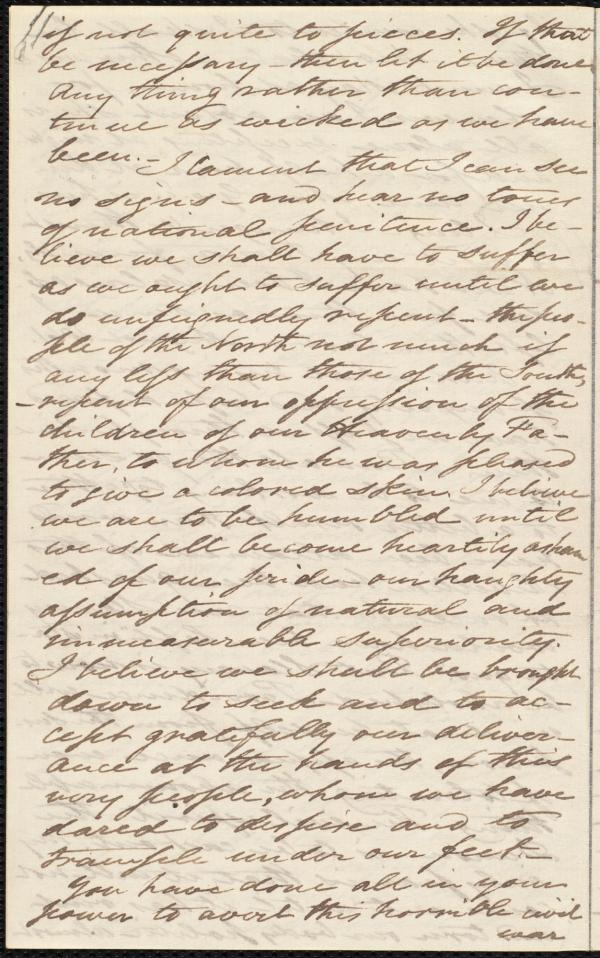 if not quite to pieces. If that
be necessary – then let it be done
any thing rather than con-
tinue as wicked as we have
been. – I lament that I can see
no signs – and hear no tones
of national penitence. I be-
lieve we shall have to suffer
as we ought to suffer until we
do unfeignedly repent – the peo-
ple of the North not much if
any less than those of the South,
– repent of our oppression of the
children of our Heavenly Fa-
ther, to whom he was pleased
to give a colored skin. I believe
we are to be humbled until
we shall become heartily asham
ed of our pride – our haughty
assumption of natural and
immeasurable superiority.
I believe we shall be brought
down to seek and to ac-
cept gratefully our deliver-
ance at the hands of this
very people, whom we have
dared to despise and to
trample under our feet. –
You have done all in your
power to avert this horrible civil
war